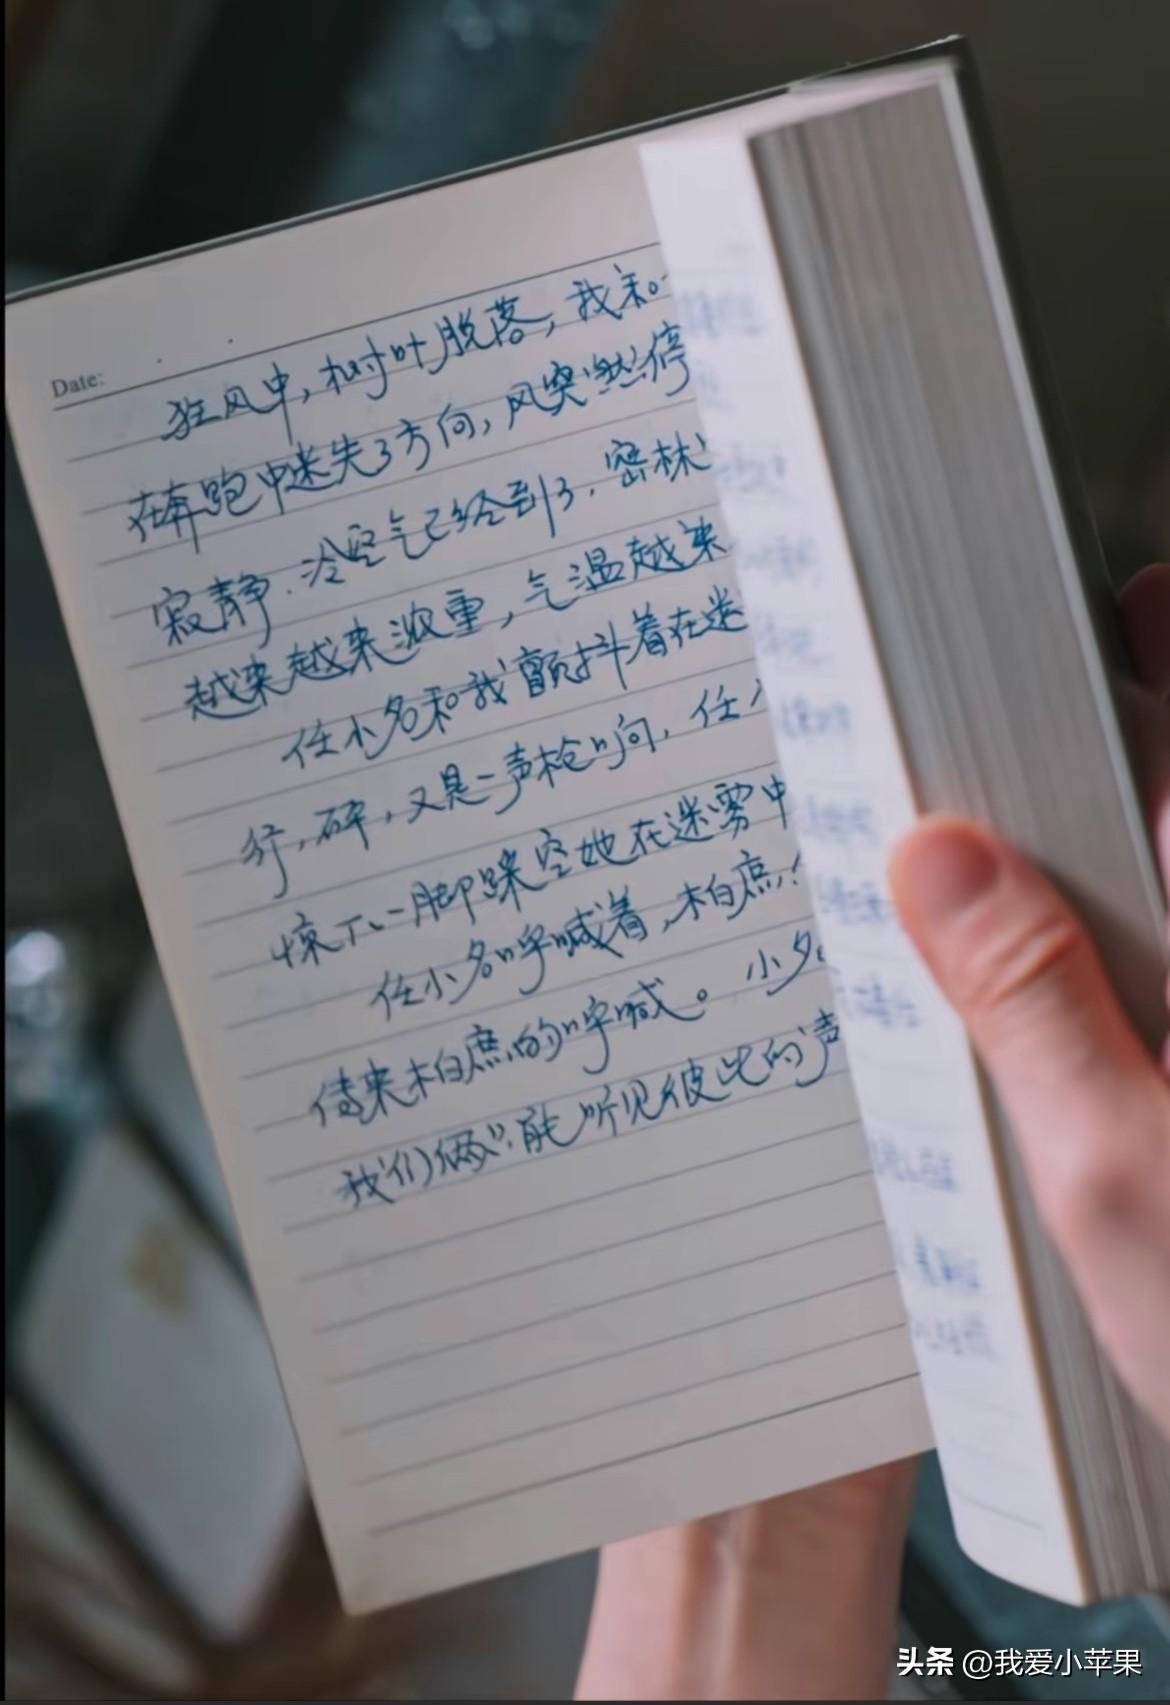 Date:
狂风中，树叶脱落，我和
在奔跑中迷失了方向，风突然停
寂静．冷空气已经到了．密林
越来越来浓重，气温越来
任小名和我颤抖着在迷
行，砰，又是一声枪响，任小
惊下一脚踩空她在迷雾中
任小名呼喊着，柏庶！
传来柏庶的呼喊。小名
我们俩只能听见彼此的声
头条 @我爱小苹果